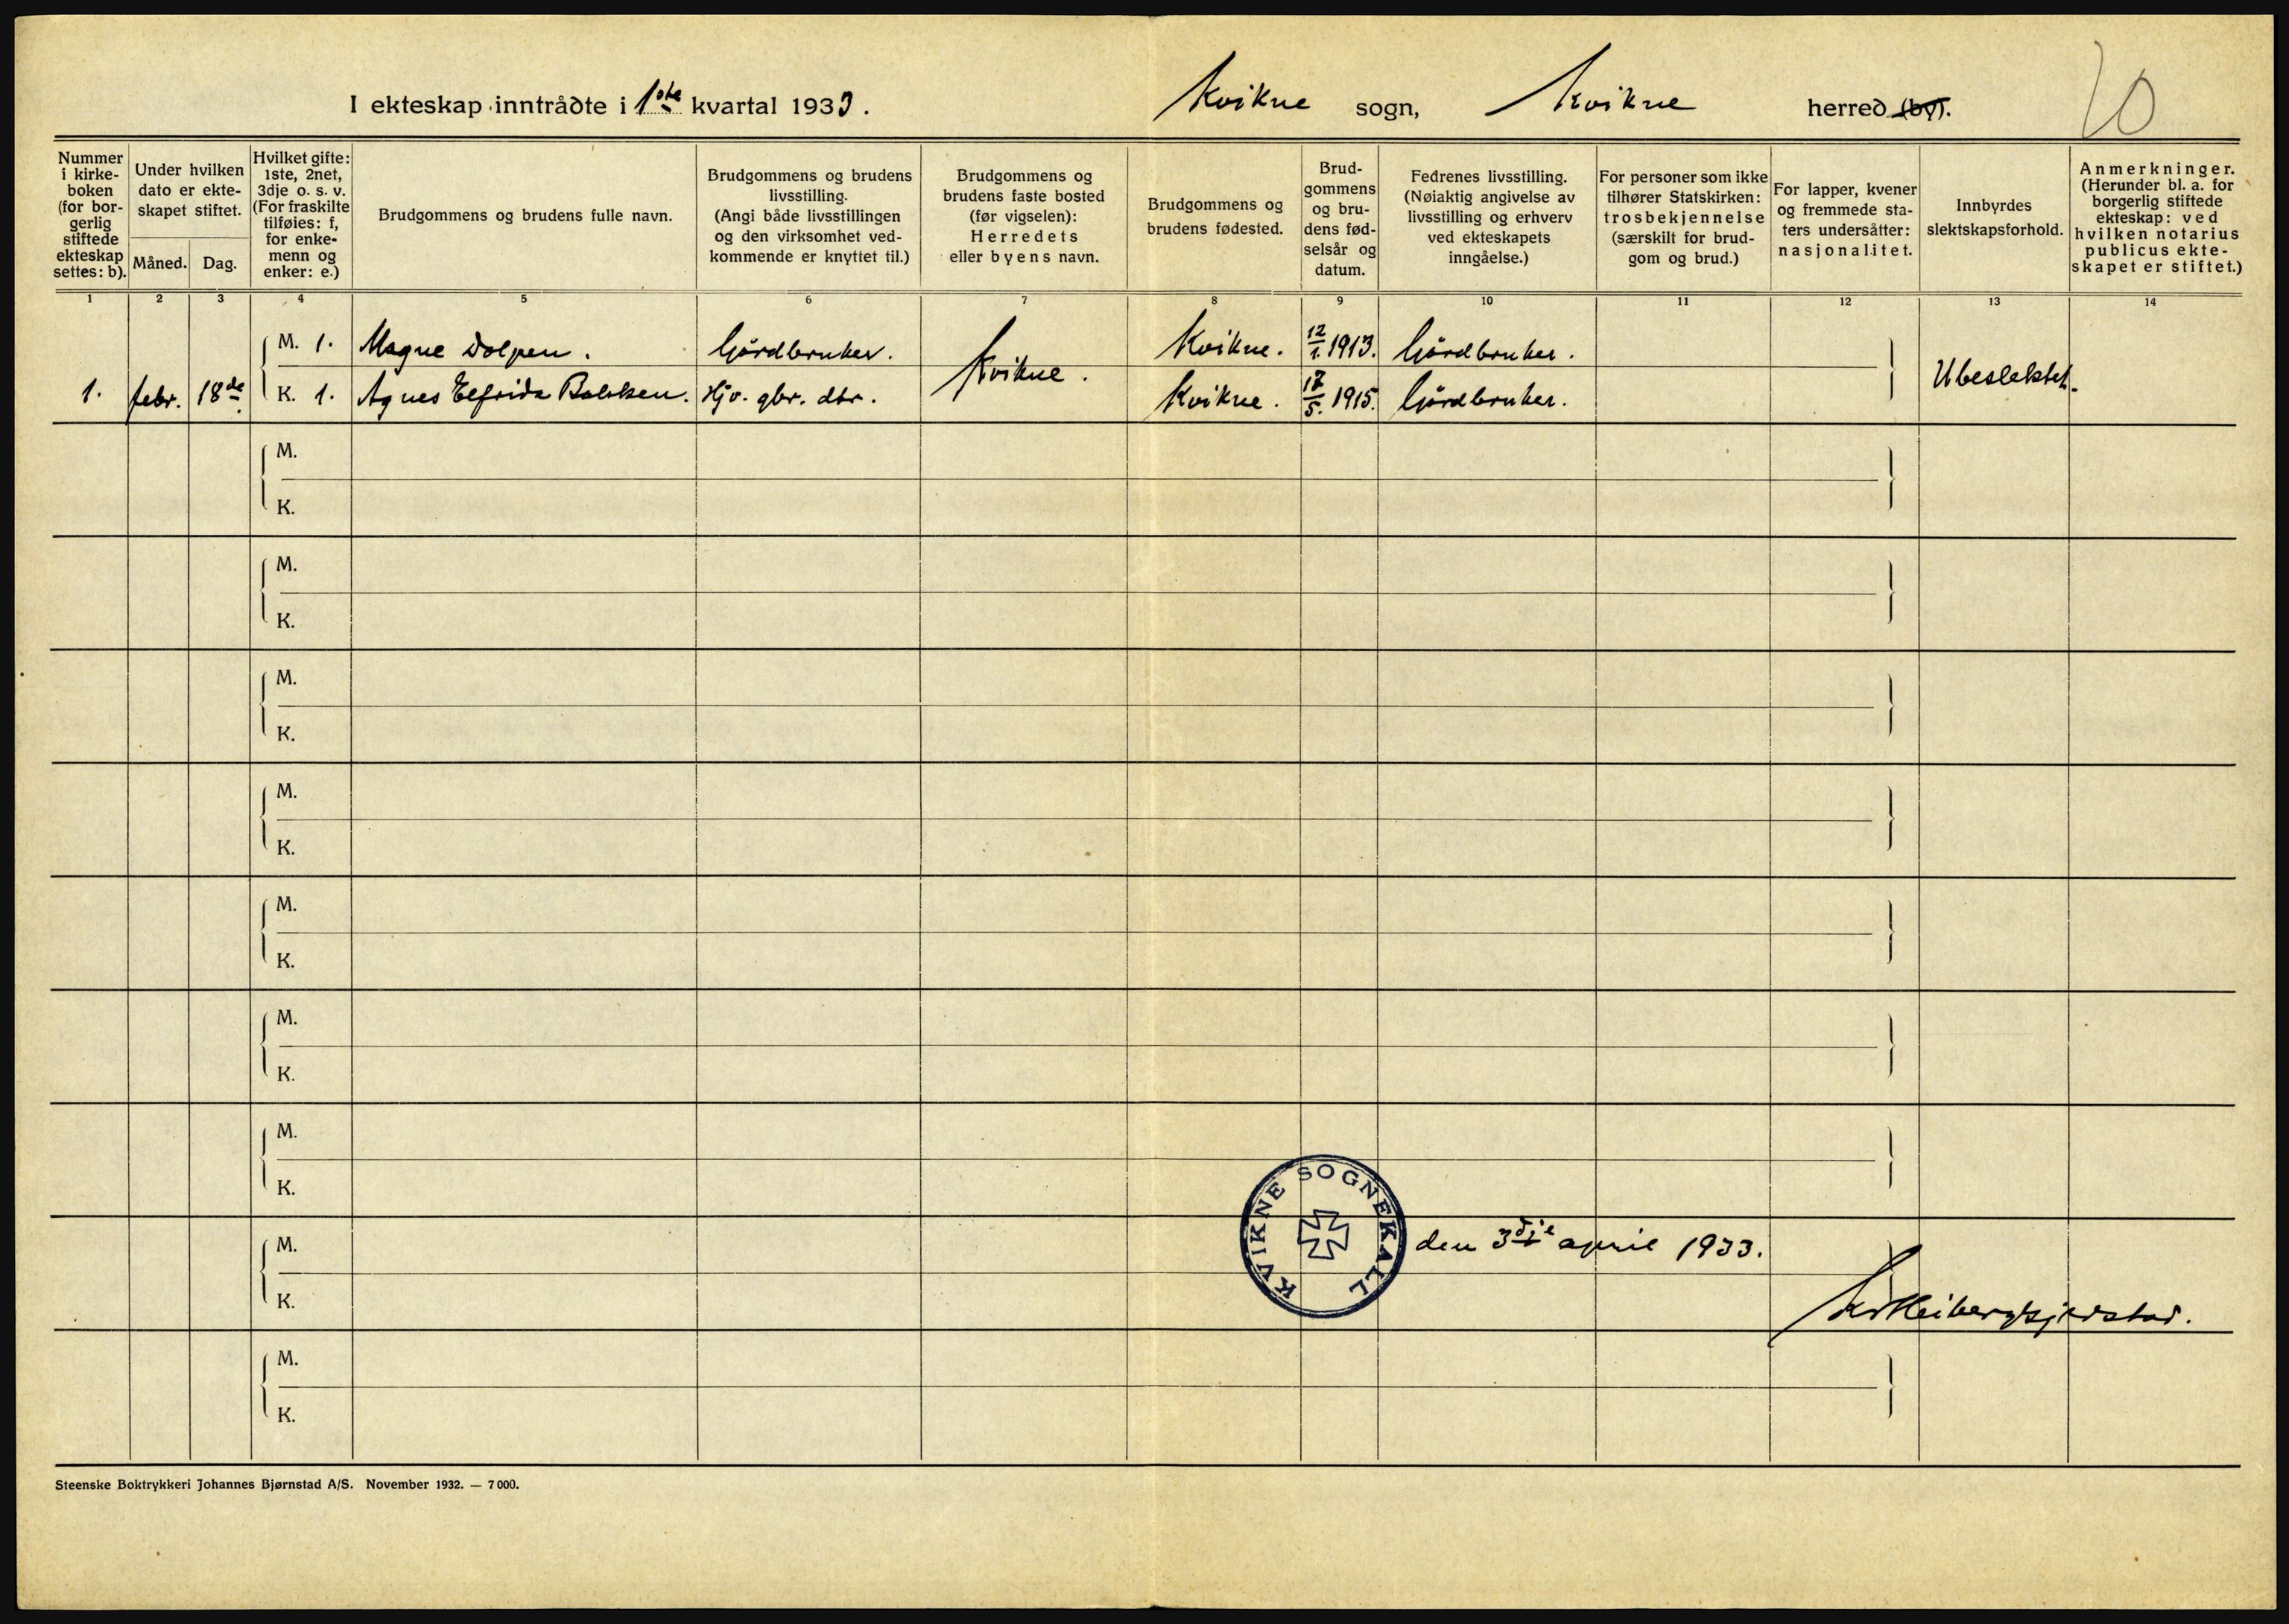 I ekteskap inntrådte i 1ste kvartal 1933. Kvikne sogn, Kvikne herred (by). 20
Nummer i kirke-boken (for bor-gerlig stiftede ekteskap settes: b).
Under hvilken dato er ekte-skapet stiftet.
Måned. Dag.
Hvilket gifte: 1ste, 2net, 3dje o. s. v. (For fraskilte tilføies: f, for enke-menn og enker: e.)
Brudgommens og brudens fulle navn.
Brudgommens og brudens livsstilling. (Angi både livsstillingen og den virksomhet ved-kommende er knyttet til.)
Brudgommens og brudens faste bosted (før vigselen): Herredets eller byens navn.
Brudgommens og brudens fødested.
Brud-gommens og bru-dens fød-selsår og datum.
Fedrenes livsstilling. (Nøiaktig angivelse av livsstilling og erhverv ved ekteskapets inngåelse.)
For personer som ikke tilhører Statskirken: trosbekjennelse (særskilt for brud-gom og brud.)
For lapper, kvener og fremmede sta-ters undersåtter: nasjonalitet.
Innbyrdes slektskapsforhold.
Anmerkninger. (Herunder bl. a. for borgerlig stiftede ekteskap: ved hvilken notarius publicus ekte-skapet er stiftet.)
1 2 3 4 5 6 7 8 9 10 11 12 13 14
M. 1. Magne Dolpen. Gårdbruker. Kvikne. Kvikne. 12/1. 1913. Gårdbruker. Ubeslektet.
1. febr. 18de K. 1. Agnes Elfrida Bakken. Hjv. gbr. dtr. Kvikne. 17/5. 1915. Gårdbruker.
M.
K.
M.
K.
M.
K.
M.
K.
M.
K.
M.
K.
M.
K.
KVIKNE SOGNEKALL
M. den 3dje april 1933.
K.
M.
K.
Steenske Boktrykkeri Johannes Bjørnstad A/S. November 1932. — 7 000.